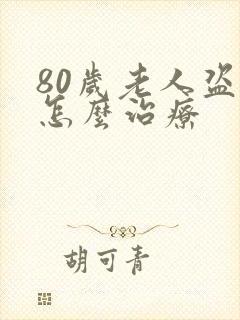 80歲老人盜
怎麼治療
胡可青